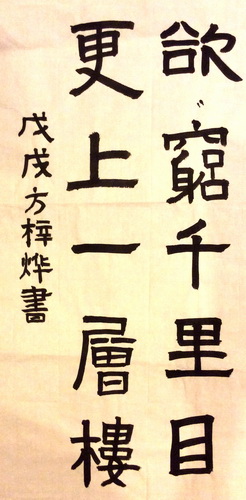 欲窮千里目
更上一層樓
戊戌方梓烨書